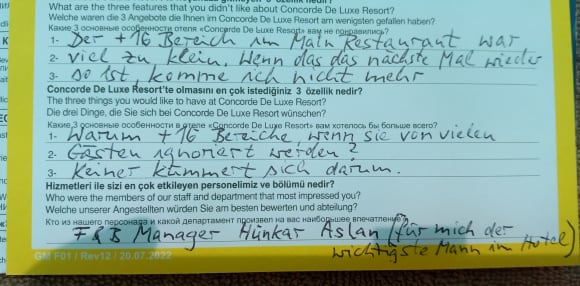 What are the three features that you didn't like about Concorde De Luxe Resort?
Welche waren die 3 Angebote die Ihnen im Concorde De Luxe Resort am wenigsten gefallen haben?
Какие 3 основные особенности отеля «Concorde De Luxe Resort» вам не понравились?
1- Der +16 Bereich im Main Restaurant war
2- viel zu klein. Wenn das das nächste Mal wieder
3- so ist, komme ich nicht mehr
Concorde De Luxe Resort'te olmasını en çok istediğiniz 3 özellik nedir?
The three things you would like to have at Concorde De Luxe Resort?
Die drei Dinge, die Sie sich bei Concorde De Luxe Resort wünschen?
Какие 3 основные особенности в отеле «Concorde De Luxe Resort» вам хотелось бы больше всего?
1- Warum +16 Bereiche, wenn sie von vielen
2- Gästen ignoriert werden?
3- Keiner kümmert sich darum.
Hizmetleri ile sizi en çok etkileyen personelimiz ve bölümü nedir?
Who were the members of our staff and department that most impressed you?
Welche unserer Angestellten würden Sie am besten bewerten und abteilung?
Кто из нашего персонала и какой департамент произвел на вас наибольшее впечатление?
F&B Manager Hünkar Aslan (für mich der
wichtigste Mann im Hotel)
GM F01 / Rev12 / 20.07.2022